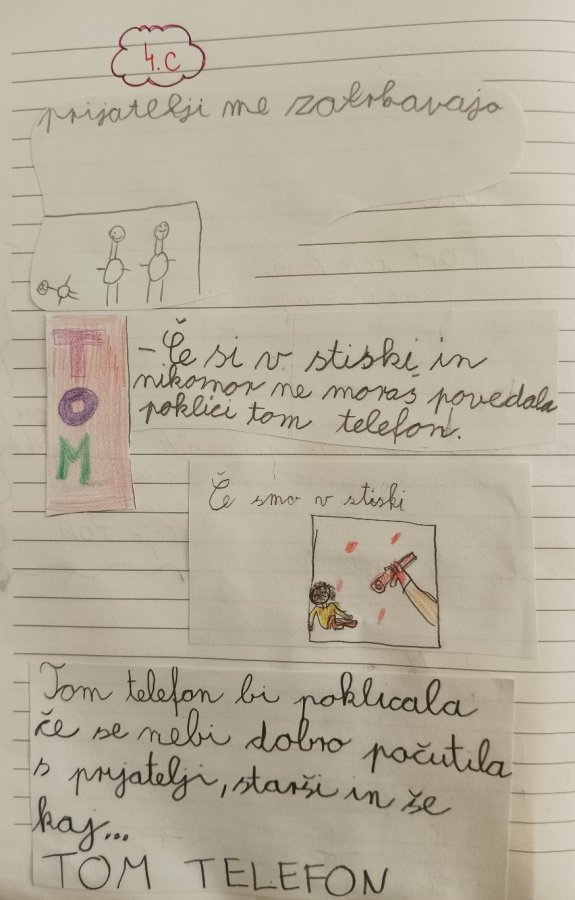 4.C
prijatelji me zatrbavajo
TOM
-Če si v stiski in
nikomor ne moraš povedala
pokliči tom telefon.
Če smo v stiski
Tom telefon bi poklicala
če se nebi dobro počutila
s prjatelji, starši in še
kaj...
TOM TELEFON